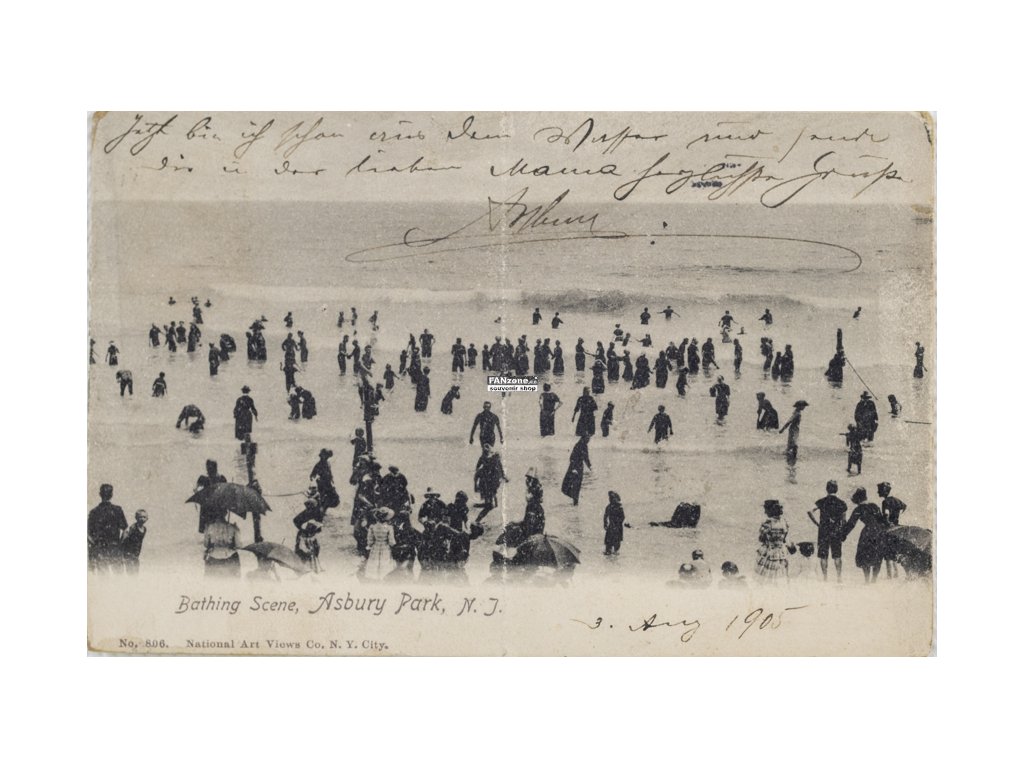 Jetzt bin ich schon aus dem Wasser und sende
dir u der lieben Mama herzlichste Grüsse
FANzone.cz
souvenir shop
Bathing Scene, Asbury Park, N. J.
3. Aug 1905
No. 806. National Art Views Co. N. Y. City.